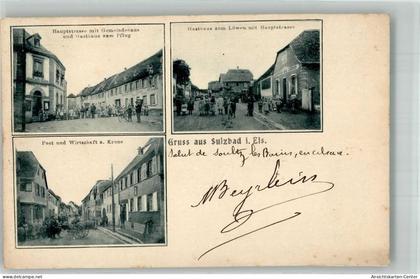 Hauptstrasse mit Gemeindehaus
und Gasthaus zum Pflug
Gasthaus zum Löwen mit Hauptstrasse
Post und Wirtschaft z. Krone
Gruss aus Sulzbad i. Els.
Salut de Soultz les Bains, en Alsace.
Ansichtskarten-Center.com